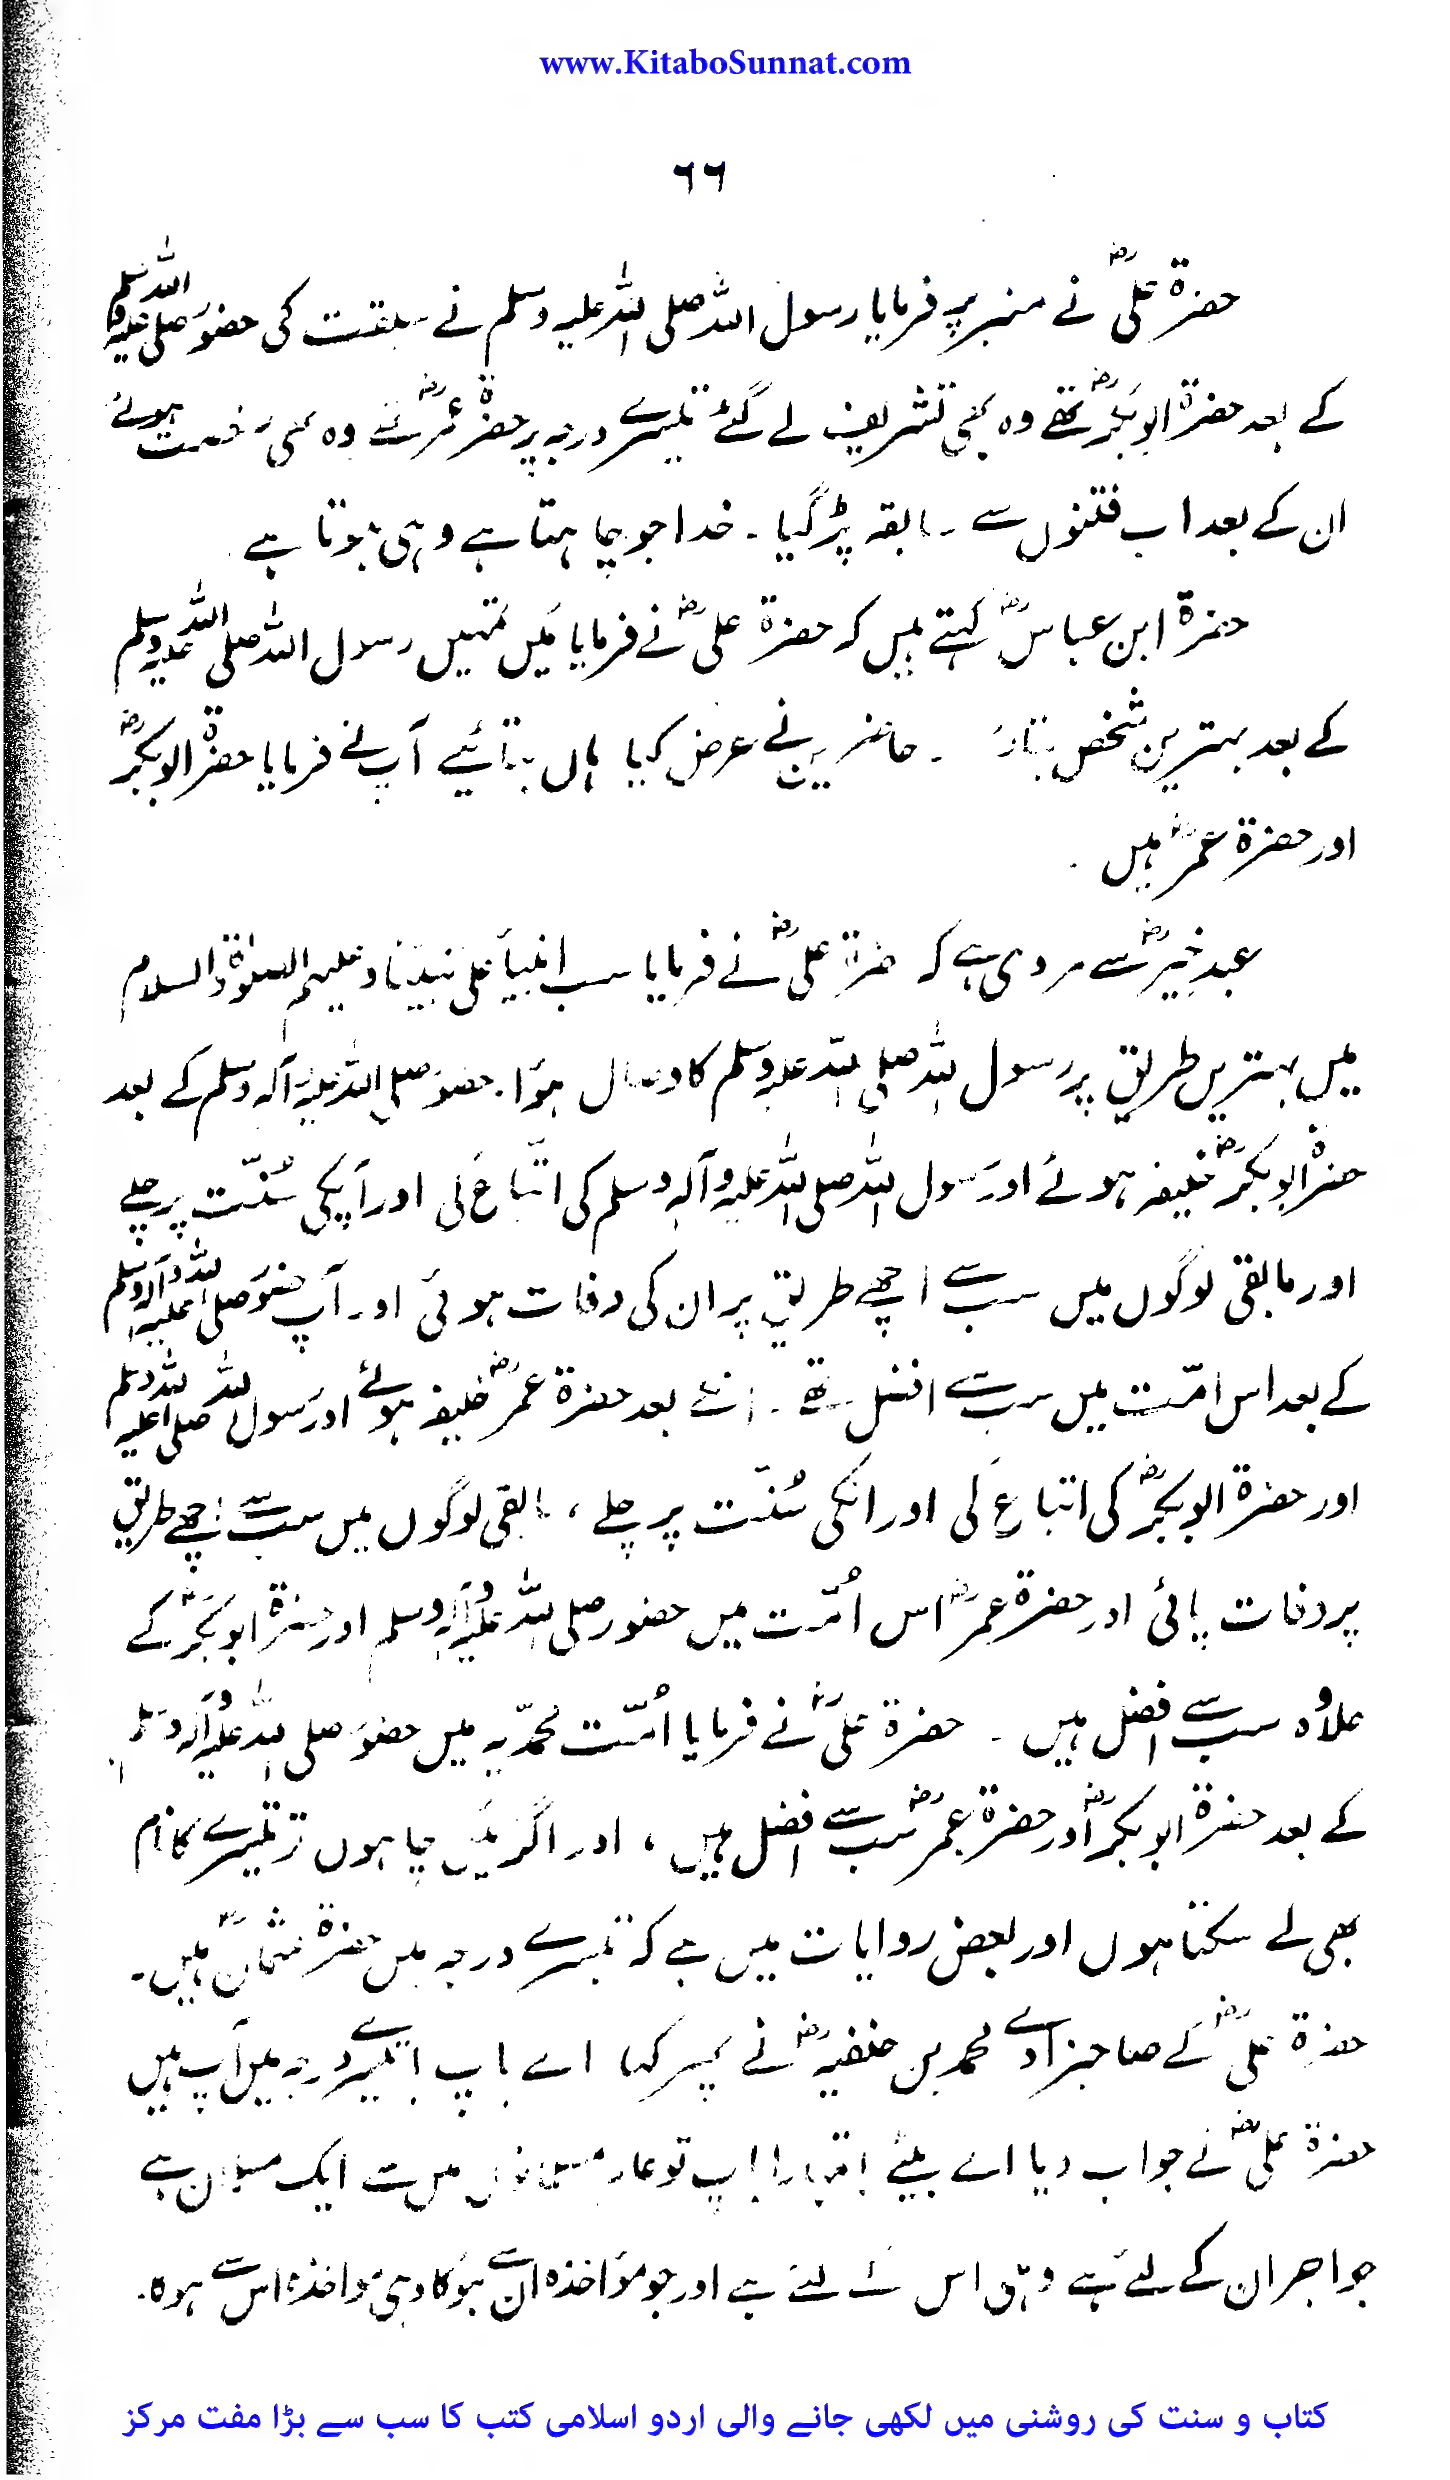 www.KitaboSunnat.com
۶۶
حضرۃ علیؓ نے منبر پر فرمایا رسول اللہ صلی اللہ علیہ وسلم نے سبقت کی حضورؐ صلی اللہ علیہ وسلم
کے بعد حضرۃ ابوبکرؓ تھے وہ بھی تشریف لے گئے تیسرے درجہ پر حضرۃ عمرؓ تھے وہ بھی رخصت ہوئے
ان کے بعد اب فتنوں سے سابقہ پڑ گیا ۔ خدا جو چاہتا ہے وہی ہوتا ہے
حضرۃ ابن عباسؓ کہتے ہیں کہ حضرۃ علیؓ نے فرمایا میَں تمہیں رسول اللہ صلی اللہ علیہ وسلم
کے بعد بہترین شخص بتاؤں ۔ حاضرین نے عرض کیا ہاں بتائیے آپ نے فرمایا حضرۃ ابوبکرؓ
اور حضرۃ عمرؓ ہیں ۔
عبد خیرؓ سے مروی ہے کہ حضرۃ علیؓ نے فرمایا سب انبیاؑ علی نبینا و علیہم الصلوٰۃ والسلام
میں بہترین طریق پر رسول اللہ صلی اللہ علیہ وسلم کا وصال ہوَا ۔ حضورؐ صلی اللہ علیہ وآلہ وسلم کے بعد
حضرۃ ابوبکرؓ خلیفہ ہوئے اور رسول اللہ صلی اللہ علیہ وآلہ وسلم کی اتّباع کی اور آپکی سُنّت پر چلے
اور مابقی لوگوں میں سب سے اچھے طریق پر ان کی وفات ہوئی اور آپ حضورؐ صلی اللہ علیہ وآلہ وسلم
کے بعد اس امّت میں سب سے افضل تھے ۔ انکے بعد حضرۃ عمرؓ خلیفہ ہوئے اور رسول اللہ صلی اللہ علیہ وسلم
اور حضرۃ ابوبکرؓ کی اتباع کی اور انکی سُنّت پر چلے ، مابقی لوگوں میں سب سے اچھے طریق
پر وفات پائی اور حضرۃ عمرؓ اس اُمّت میں حضور صلی اللہ علیہ وآلہ وسلم اور حضرۃ ابوبکرؓ کے
علاوہ سب سے افضل ہیں ۔ حضرۃ علیؓ نے فرمایا اُمّت محمدّیہ میں حضورؐ صلی اللہ علیہ وآلہ وسلم
کے بعد حضرۃ ابوبکرؓ اور حضرۃ عمرؓ سب سے افضل ہیں ، اور اگر میَں چاہوں تو تیسرے کا نام
بھی لے سکتا ہوں اور بعض روایات میں ہے کہ تیسرے درجہ میں حضرۃ عثمانؓ ہیں ۔
حضرۃ علیؓ کے صاحبزادے محمد بن حنفیہؓ نے پھر کہا اے باپ ! تیسرے درجہ میں آپ ہیں
حضرۃ علیؓ نے جواب دیا اے بیٹے ! تمہارا باپ تو عام مسلمانوں میں سے ایک مسلمان ہے
جو اجر ان کے لئے ہے وہی اس کے لئے ہے اور جو مؤاخذہ ان سے ہوگا وہی مؤاخذہ اس سے ہوگا ۔
کتاب و سنت کی روشنی میں لکھی جانے والی اردو اسلامی کتب کا سب سے بڑا مفت مرکز